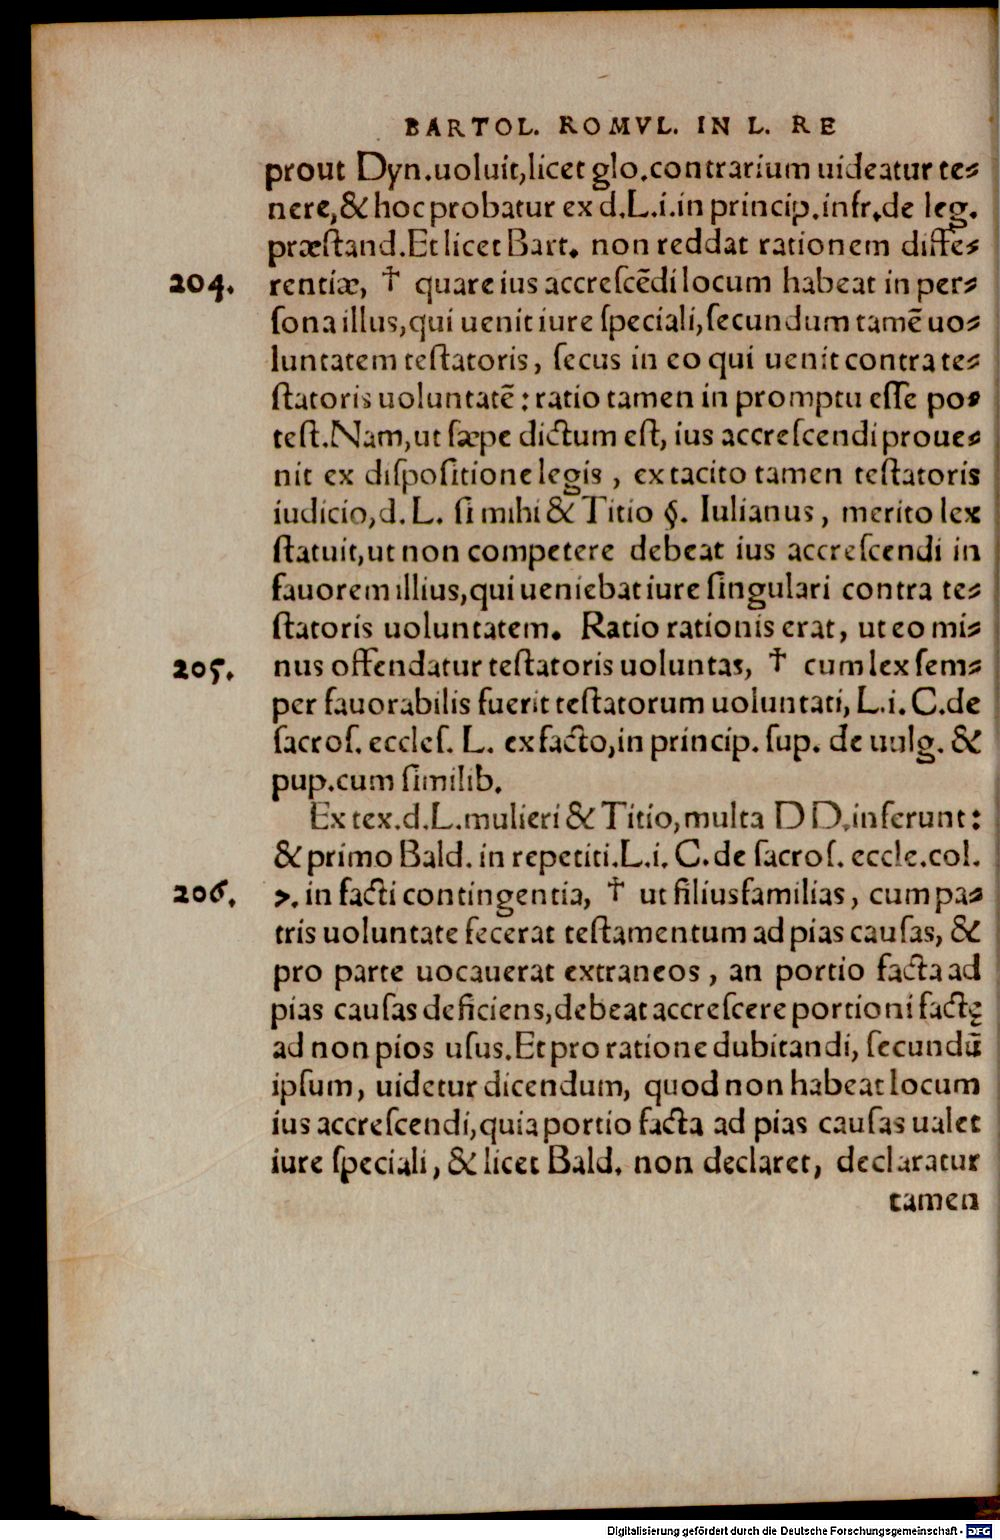 BARTOL. ROMVL. IN L. RE
prout Dyn.uoluit,licet glo.contrarium uideatur te⸗
nere,& hoc probatur ex d.L.i.in princip.infr.de leg.
præstand.Et licet Bart. non reddat rationem diffe⸗
204. rentiæ, † quare ius accrescēdi locum habeat in per⸗
sona illus,qui uenit iure speciali,secundum tamē uo⸗
luntatem testatoris, secus in eo qui uenit contra te⸗
statoris uoluntatē: ratio tamen in promptu esse po⸗
test.Nam,ut sæpe dictum est, ius accrescendi proue⸗
nit ex dispositione legis, ex tacito tamen testatoris
iudicio,d.L. si mihi & Titio §. Iulianus, merito lex
statuit,ut non competere debeat ius accrescendi in
fauorem illius,qui ueniebat iure singulari contra te⸗
statoris uoluntatem. Ratio rationis erat, ut eo mi⸗
205. nus offendatur testatoris uoluntas, † cum lex sem⸗
per fauorabilis fuerit testatorum uoluntati, L.i. C.de
sacros. eccles. L. ex facto,in princip. sup. de uulg. &
pup.cum similib.
Ex tex.d.L.mulieri & Titio,multa DD.inferunt:
& primo Bald. in repetiti.L.i. C.de sacros. eccle.col.
206. 7. in facti contingentia, † ut filiusfamilias, cum pa⸗
tris uoluntate fecerat testamentum ad pias causas, &
pro parte uocauerat extraneos, an portio facta ad
pias causas deficiens,debeat accrescere portioni factę
ad non pios usus.Et pro ratione dubitandi, secundū
ipsum, uidetur dicendum, quod non habeat locum
ius accrescendi,quia portio facta ad pias causas ualet
iure speciali, & licet Bald. non declaret, declaratur
tamen
Digitalisierung gefördert durch die Deutsche Forschungsgemeinschaft - DFG